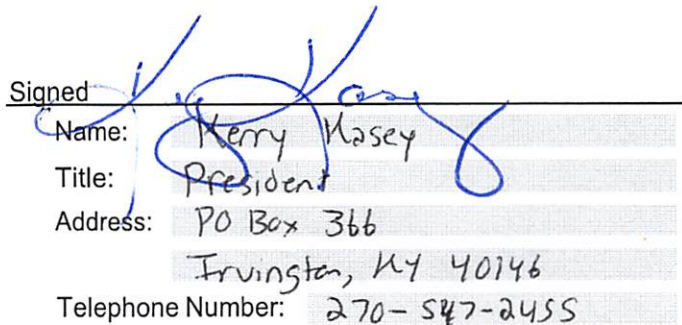 Signed
Name: Kerry Kasey
Title: President
Address: PO Box 366
Irvington, KY 40146
Telephone Number: 270-547-2455